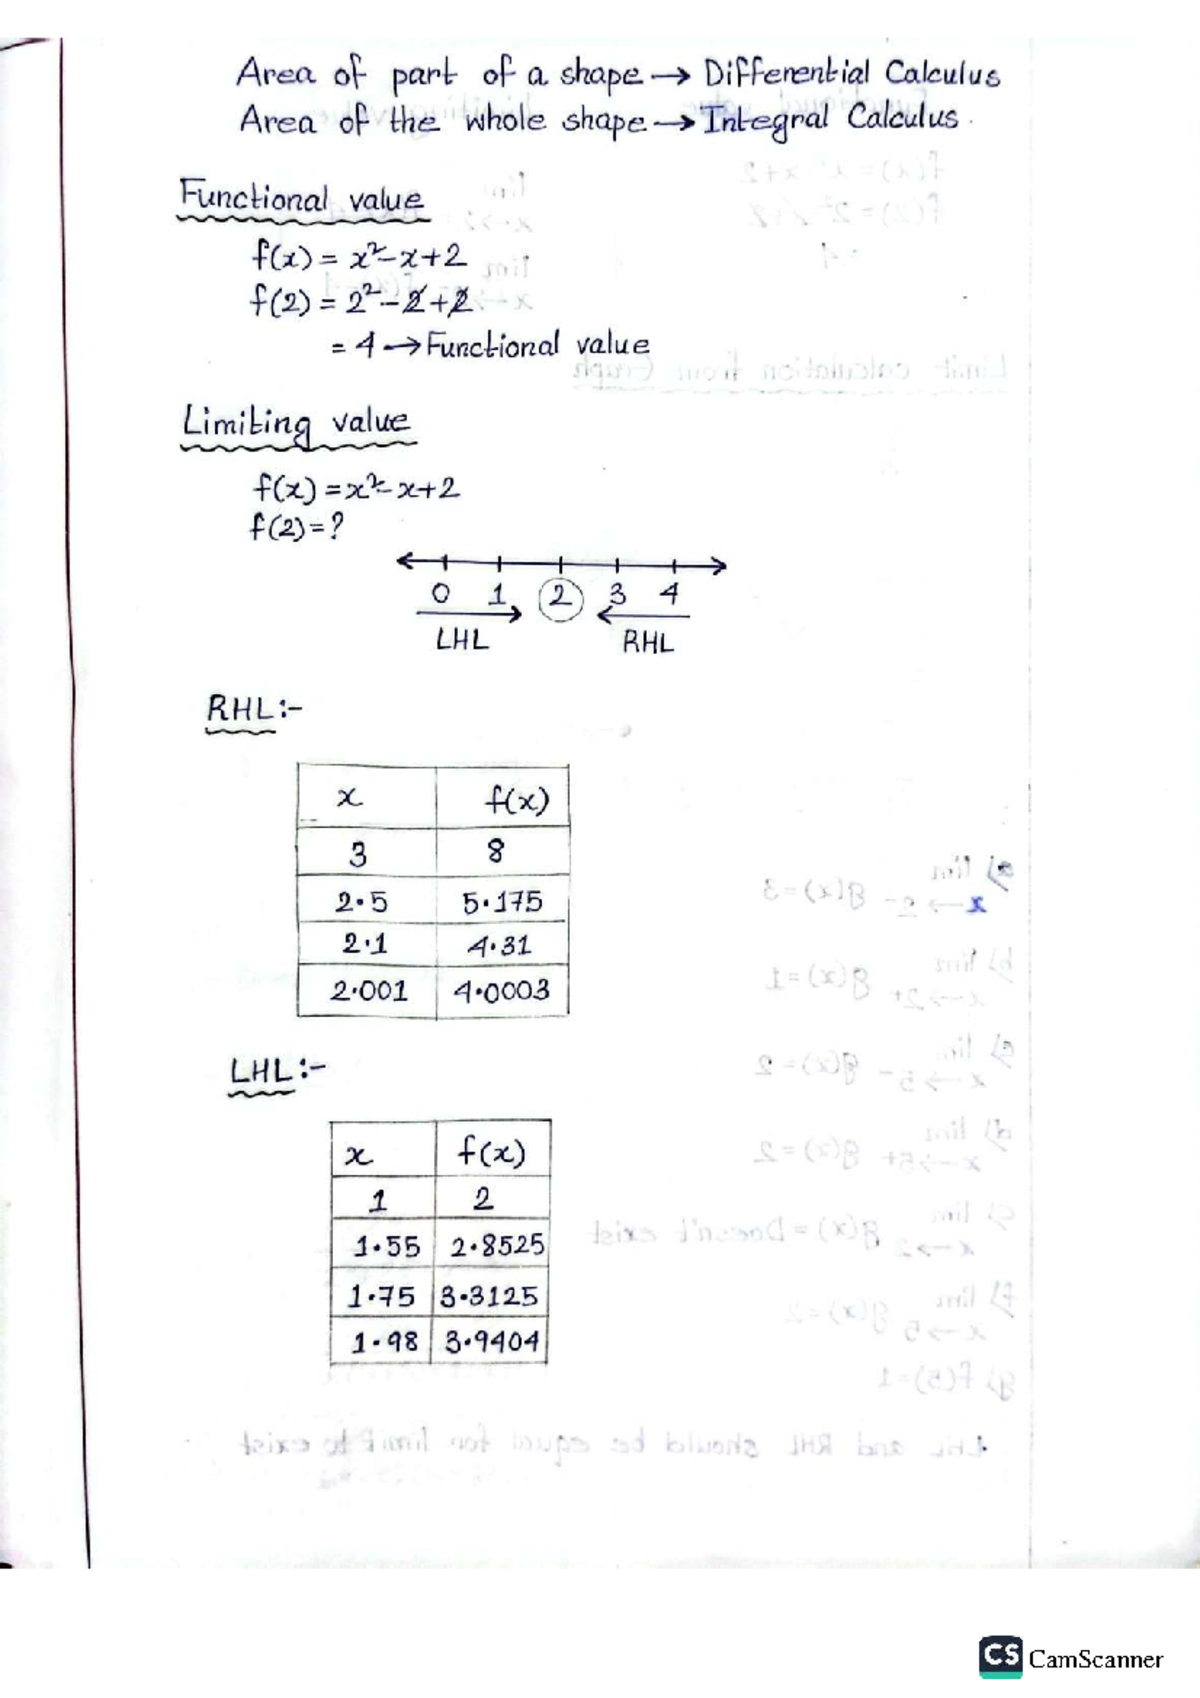 Area of part of a shape → Differential Calculus
Area of the whole shape → Integral Calculus.
Functional value
f(x) = x²-x+2
f(2) = 2²-2+2
= 4 → Functional value
Limiting value
f(x) = x²-x+2
f(2) = ?
0 1 2 3 4
LHL RHL
RHL:-
x f(x)
3 8
2.5 5.175
2.1 4.31
2.001 4.0003
LHL:-
x f(x)
1 2
1.55 2.8525
1.75 3.3125
1.98 3.9404
CS CamScanner